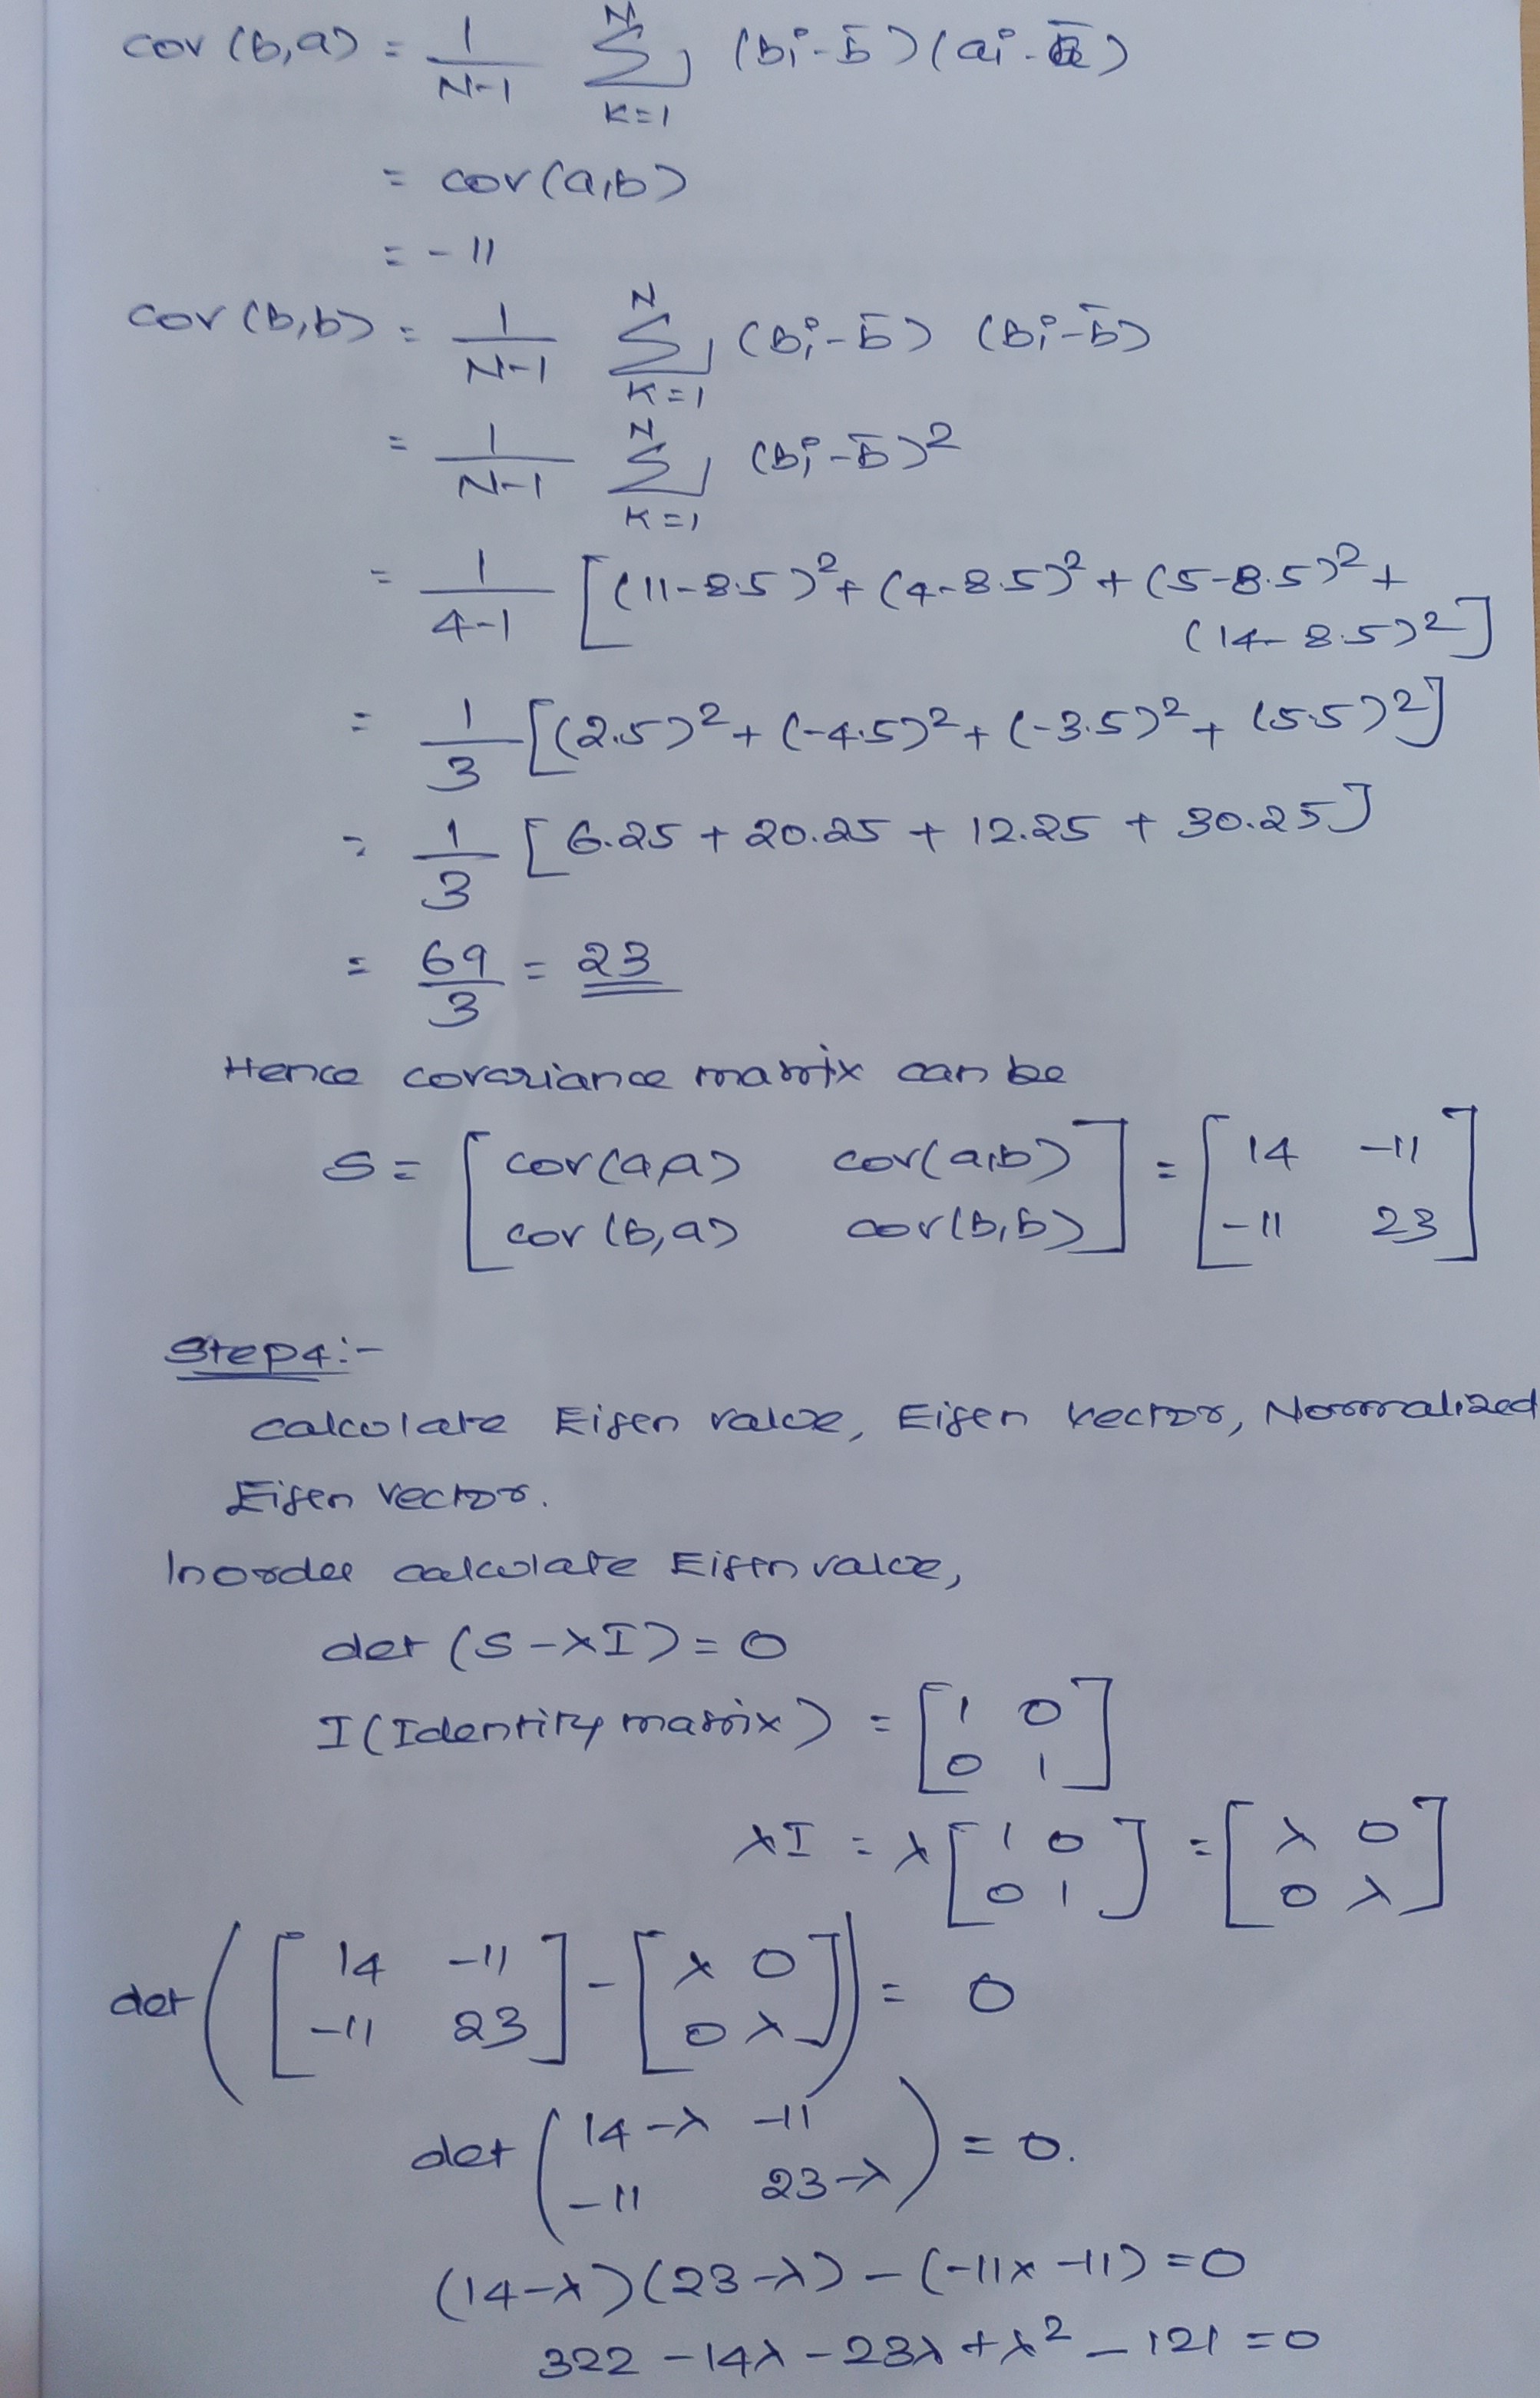 cov (b,a) = 1/(N-1) N Σ K=1 (bi - b̄) (ai - ā)
= cov(a,b)
= -11
cov (b,b) = 1/(N-1) N Σ K=1 (bi - b̄) (bi - b̄)
= 1/(N-1) N Σ K=1 (bi - b̄)²
= 1/(4-1) [(11-8.5)² + (4-8.5)² + (5-8.5)² +
(14-8.5)²]
= 1/3 [(2.5)² + (-4.5)² + (-3.5)² + (5.5)²]
= 1/3 [6.25 + 20.25 + 12.25 + 30.25]
= 69/3 = 23
Hence covariance matrix can be
S = [cov(a,a) cov(a,b)] = [14 -11]
[cov(b,a) cov(b,b)] [-11 23]
Step4:-
calculate Eigen value, Eigen vector, Normalized
Eigen vector.
Inorder calculate Eigen value,
det (S-λI) = 0
I (Identity matrix) = [1 0]
[0 1]
λI = λ [1 0] = [λ 0]
[0 1] [0 λ]
det ([14 -11] - [λ 0]) = 0
[-11 23] [0 λ]
det (14-λ -11) = 0.
(-11 23-λ)
(14-λ)(23-λ) - (-11x -11) = 0
322 - 14λ - 23λ + λ² - 121 = 0